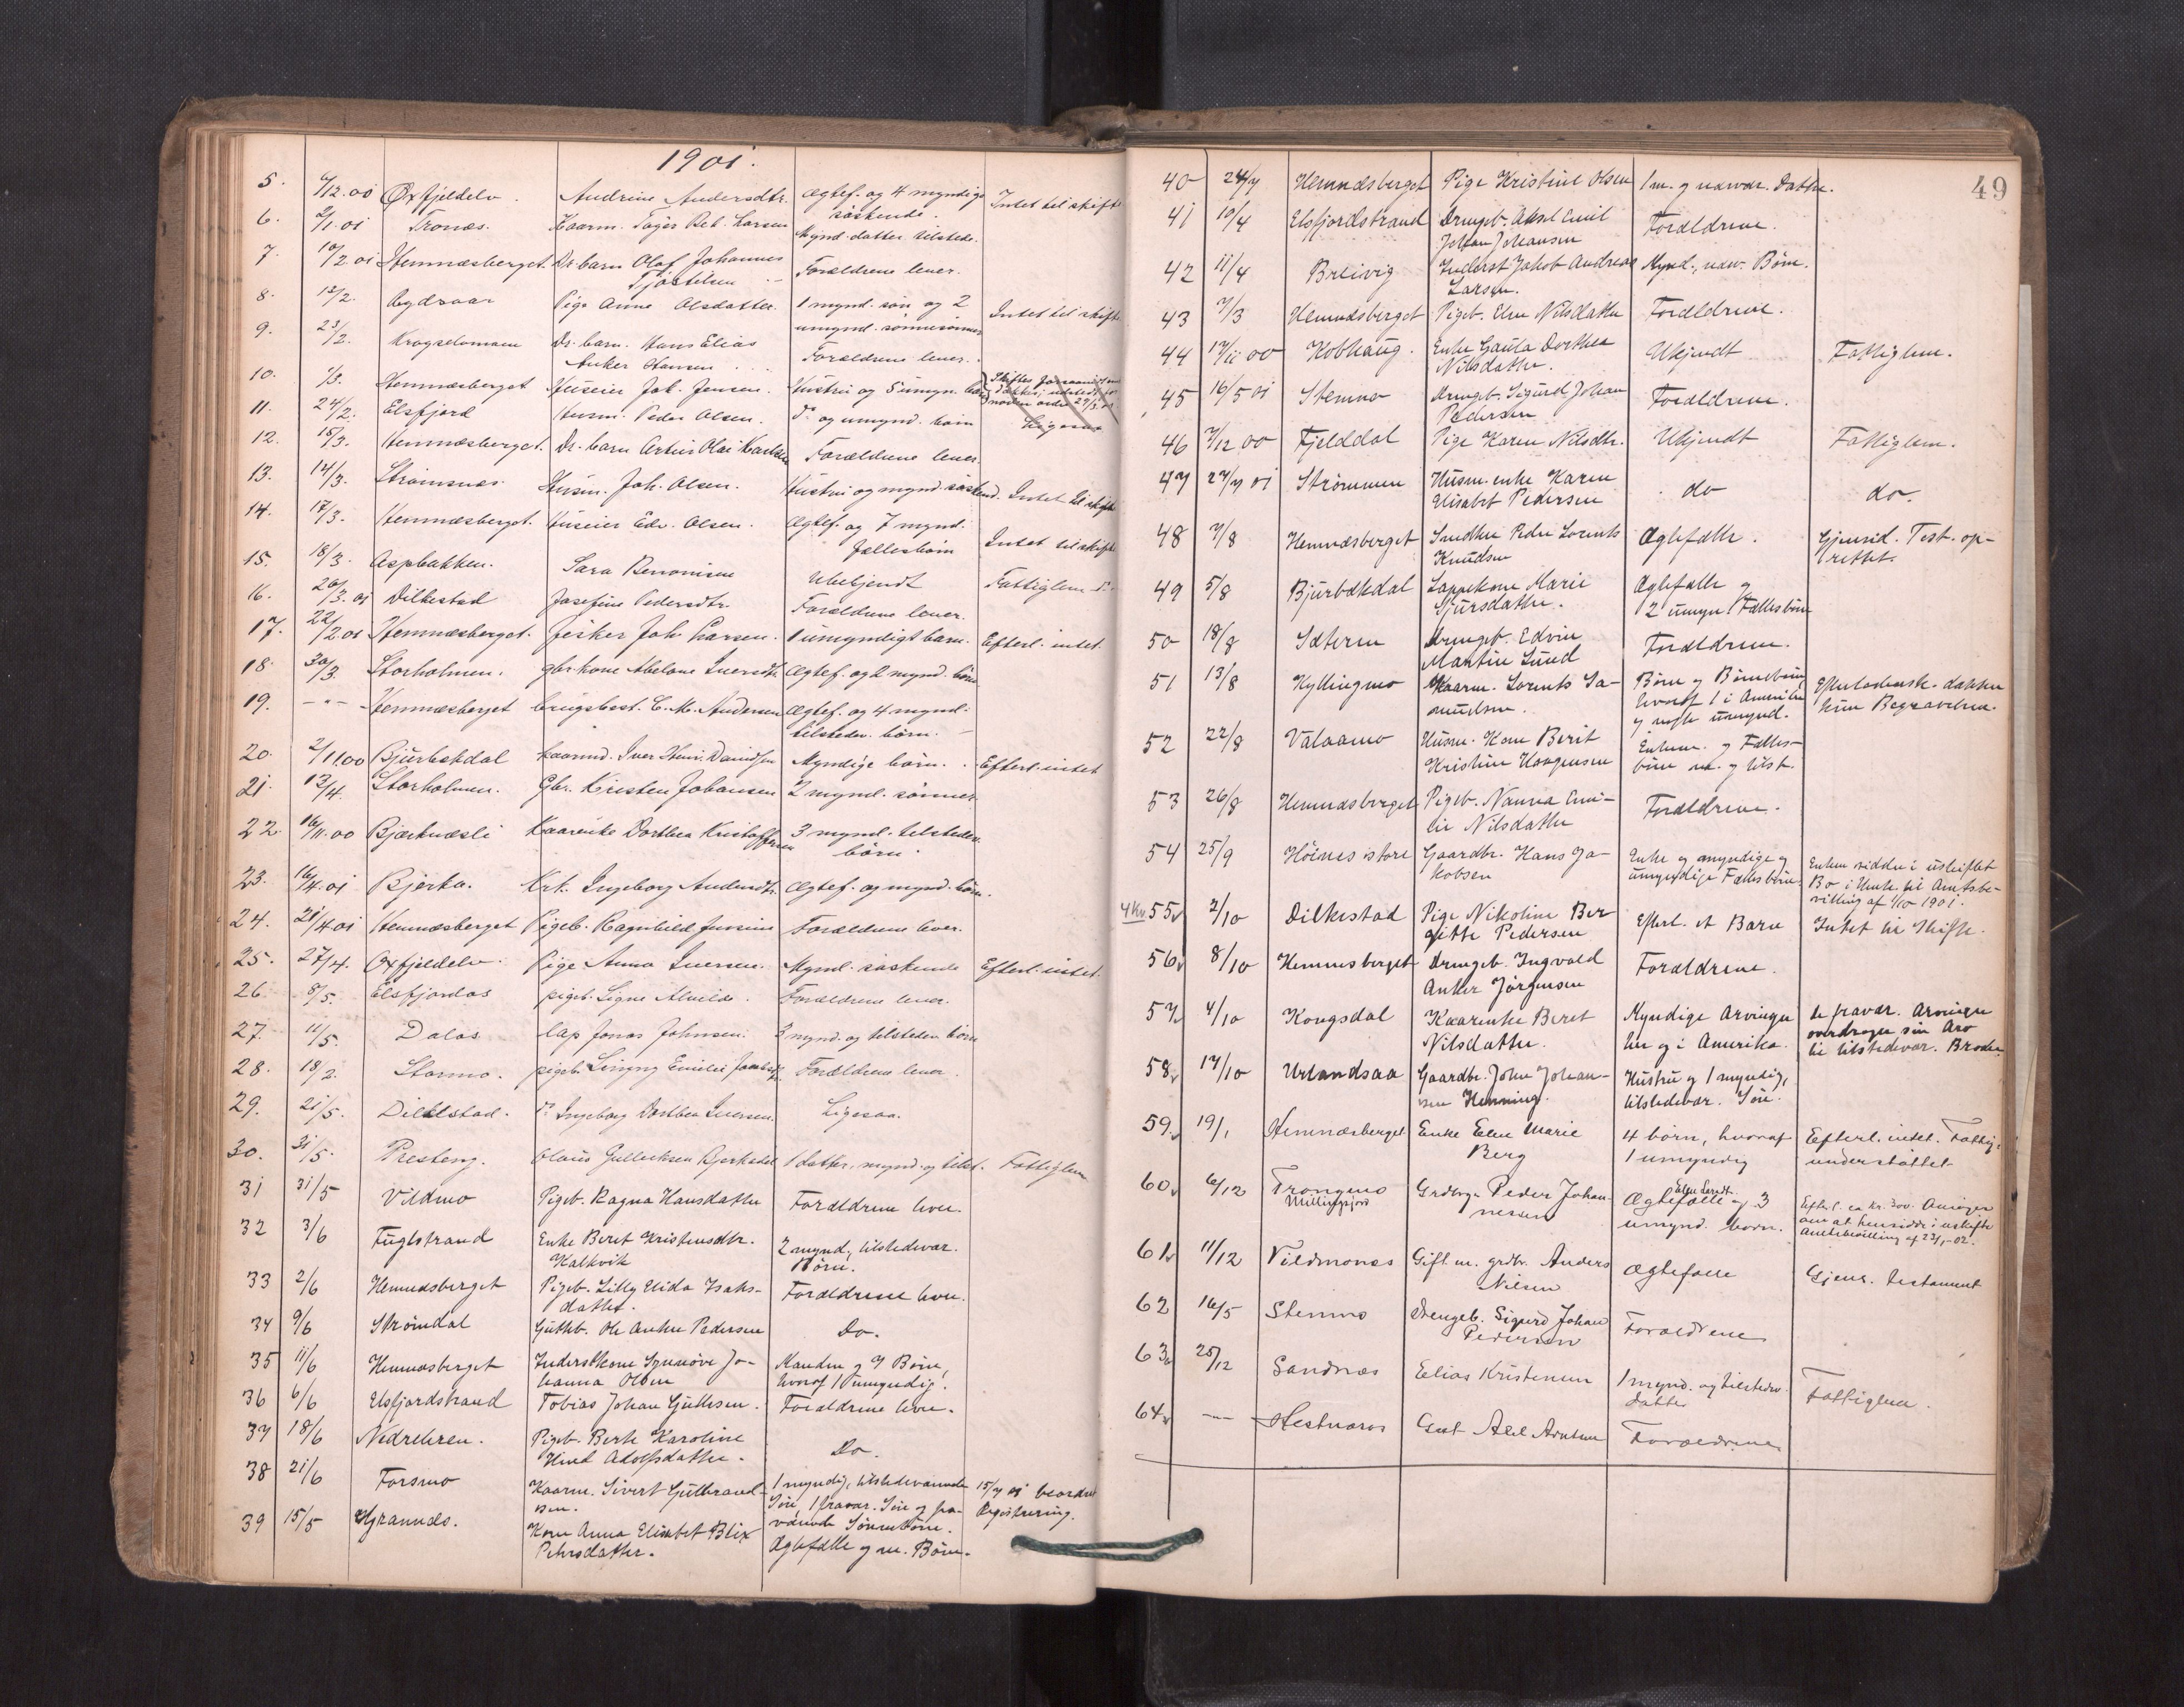 1901.
5. 6/12.00 Oxfjeldelv. Andrine Andersdtr. Ægtef. og 4 myndige søskende. Intet til skifte
6. 2/1.01 Tronæs. Kaarm. Larsen Mynd. datter tilstede.
7. 10/2.01 Hemnæsberget. Dr. barn Olaf Johannes Forældrene lever.
8. 12/2. Pige Anne Olsdatter. 1 mynd. søn og 2 umynd. sønnesønner Intet til skifte
9. 23/2. Dr. barn. Hans Elias Anker Hansen Forældrene lever.
10. 1/3. Hemnæsberget Huseier Jak. Jensen. Hustru og 5 umyn. børn
11. 24/2. Elsfjord Husm. Peder Olsen. do og umynd. børn Ligesaa
12. 15/3. Hemnæsberget. Dr. barn Forældrene lever.
13. 14/3. Strømsnæs. Husm. Joh. Olsen. Hustru og mynd. søskend. Intet til skifte
14. 17/3. Hemnæsberget. Huseier Edv. Olsen. Ægtef. og 7 mynd. fællesbørn Intet til skifte
15. 18/3. Aspbakken. Sara Benonisen Ubekjendt Fattiglem
16. 26/3. 01 Dilkestad Josefine Pedersdtr. Forældrene lever.
17. 22/2.01 Hemnæsberget. fisker Joh Larsen. 1 umyndigt barn. Efterl. intet
18. 30/3. Storholmen. gbr. kone Abelone Iversdtr. Ægtef. og 2 mynd. børn
19. - " - Hemnæsberget brugsbest. C. M. Andersen Ægtef. og 4 mynd. tilstedev. børn.
20. 2/11.00 Bjurbækdal kaarmd. Iver Henr. Davidsen Myndige børn. Efterl. intet
21. 13/4. Storholmen. Gbr. Kristen Johansen 2 mynd. sønner
22. 16/11.00 Bjærknæsli Kaarenke Dorthea Kristoffersen 3 mynd. tilstedev. børn.
23. 16/4.01 Bjerka. Krt. Ingeborg Andersdtr. Ægtef. og mynd. børn.
24. 21/4.01 Hemnæsberget Pigeb. Ragnhild Jensine Forældrene lever.
25. 27/4. Oxfjeldelv. Pige Anna Iversen. Mynd. søskende Efterl. intet
26. 8/5. Elsfjordos pigeb. Signe Alvilde. Forældrene lever.
27. 11/5. Dalos lap Jonas Johnsen. 3 mynd. og tilstedev børn
28. 18/2. Stormo. pigeb. Emilie Forældrene lever.
29. 21/5. Dilkestad. do Ingeborg Dorthea Iversen. Ligesaa.
30. 31/5. Presteng. Olaus Gullecksen 1 datter, mynd. og tilst. Fattiglem
31 31/5 Vildmo Pigeb. Ragna Hansdatter Forældrene lever.
32 3/6 Fuglstrand Enke Beret Kristensdtr. Kalkvik 2 mynd., tilstedevær. Børn.
33 2/6 Hemnæsberget Pigeb. Lilly Elida Isaksdatter. Forældrene lever.
34 9/6 Strømdal Guttb. Ole Anker Pedersen Do.
35 11/6 Hemnæsberget Inderstkone Synnøve Johanna Olsen Manden og 7 Børn, hvoraf 1 umyndig.
36 6/6 Elsfjordstrand Tobias Johan Guttesen. Forældrene lever.
37 18/6 Nedreleren. Pigeb. Berte Karoline Hind Adolfsdatter. Do.
38 21/6 Forsmo Kaarm. Sivert Gulbrandsen. 1 myndig, tilstedeværende Søn, 1 fravær. Søn og fraværende Sønnebørn. 15/7 01 beordret Registrering.
39 15/5 Grannæs. Kone Anna Elisabet Blix Petersdatter. Ægtefælle og m. Børn.
49
40 24/7 Hemnæsberget Pige Kristine Olsen 1 m. og nærvær. Datter.
41 10/4 Elsfjordstrand Drengeb. Aksel Emil Johan Johansen Forældrene.
42 11/4 Breivig Inderst Jakob Andreas Larsen. Mynd., nærv. Børn.
43 7/3 Hemnæsberget Pigeb. Elen Nilsdatter Forældrene.
44 17/11 00 Kobhaug. Enke Dorthea Nilsdatter. Ukjendt Fattiglem.
45 16/5 01 Stenmo Drengb. Sigurd Johan Pedersen Forældrene.
46 7/12 00 Fjelddal Pige Karen Nilsdtr. Ukjendt Fattiglem.
47 27/7 01 Strømmen Husm. enke Karen Elisabet Pedersen do do.
48 7/8 Hemnæsberget Snedker Peder Lorents Knudsen Ægtefælle. Gjensid. Test. oprettet.
49 5/8 Bjurbækdal Lappekone Marie Sjursdatter. Ægtefælle og 2 umyn. Fællesbørn
50 18/8 Sæteren Drengeb. Edvin Martin Lund Forældrene.
51 13/8 Kyllingmo Kaarm. Lorents Samuelsen. Børn og Børnebørn, hvoraf 1 i Amerika og nogle umynd. Efterladensk. dækker kun Begravelsen.
52 22/8 Valaamo Husm. Kone Berit Kristine Haagensen Enkem. og Fællesbørn m. og tilst.
53 26/8 Hemnæsberget Pigeb. Nanna Emilie Nilsdatter Forældrene.
54 25/9 Høines store Gaardbr. Hans Jakobsen Enke og myndige og umyndige Fællesbørn. Enken sidder i uskiftet Bo i Henh. til Amtsbevilling af 1/10 1901.
4 Kv. 55 2/10 Dilkestad Pige Nikoline Bergitte Pedersen Efterl. et Barn Intet til Skifte.
56 8/10 Hemnesberget Drengeb. Ingvald Anker Jørgensen Forældrene.
57 4/10 Kongsdal Kaarenke Beret Nilsdatter. Myndige Arvinger her og i Amerika. de fravær. Arvinger overdrager sin Arv til tilstedevær. Broder
58 17/10 Urlandsaa Gaardbr. John Johansen Henning. Hustru og 1 myndig, tilstedevær. Søn.
59. 19/1 Hemnæsberget Enke Elen Marie Berg 4 børn, hvoraf 1 umyndig Efterl. intet. Fattigunderstøttet
60 6/12 Trongmo Grdbrgr Peder Johannessen Ægtefælle og 3 umynd. børn. Efterl. ca kr. 300. Ansøger om at hensidde i uskifte Amtsbevilling af 23/1-02.
61 11/12 Vildmones Gift m. grdbr. Anders Nilsen Ægtefælle Gjens. testament
62 16/5 Stenmo Drengeb. Sigurd Johan Pedersen Forældrene
63 25/12 Sandnæs Elias Kristensen 1 mynd. og tilstedev. datter Fattiglem.
64 - " - Hestnæsos Gut Forældrene